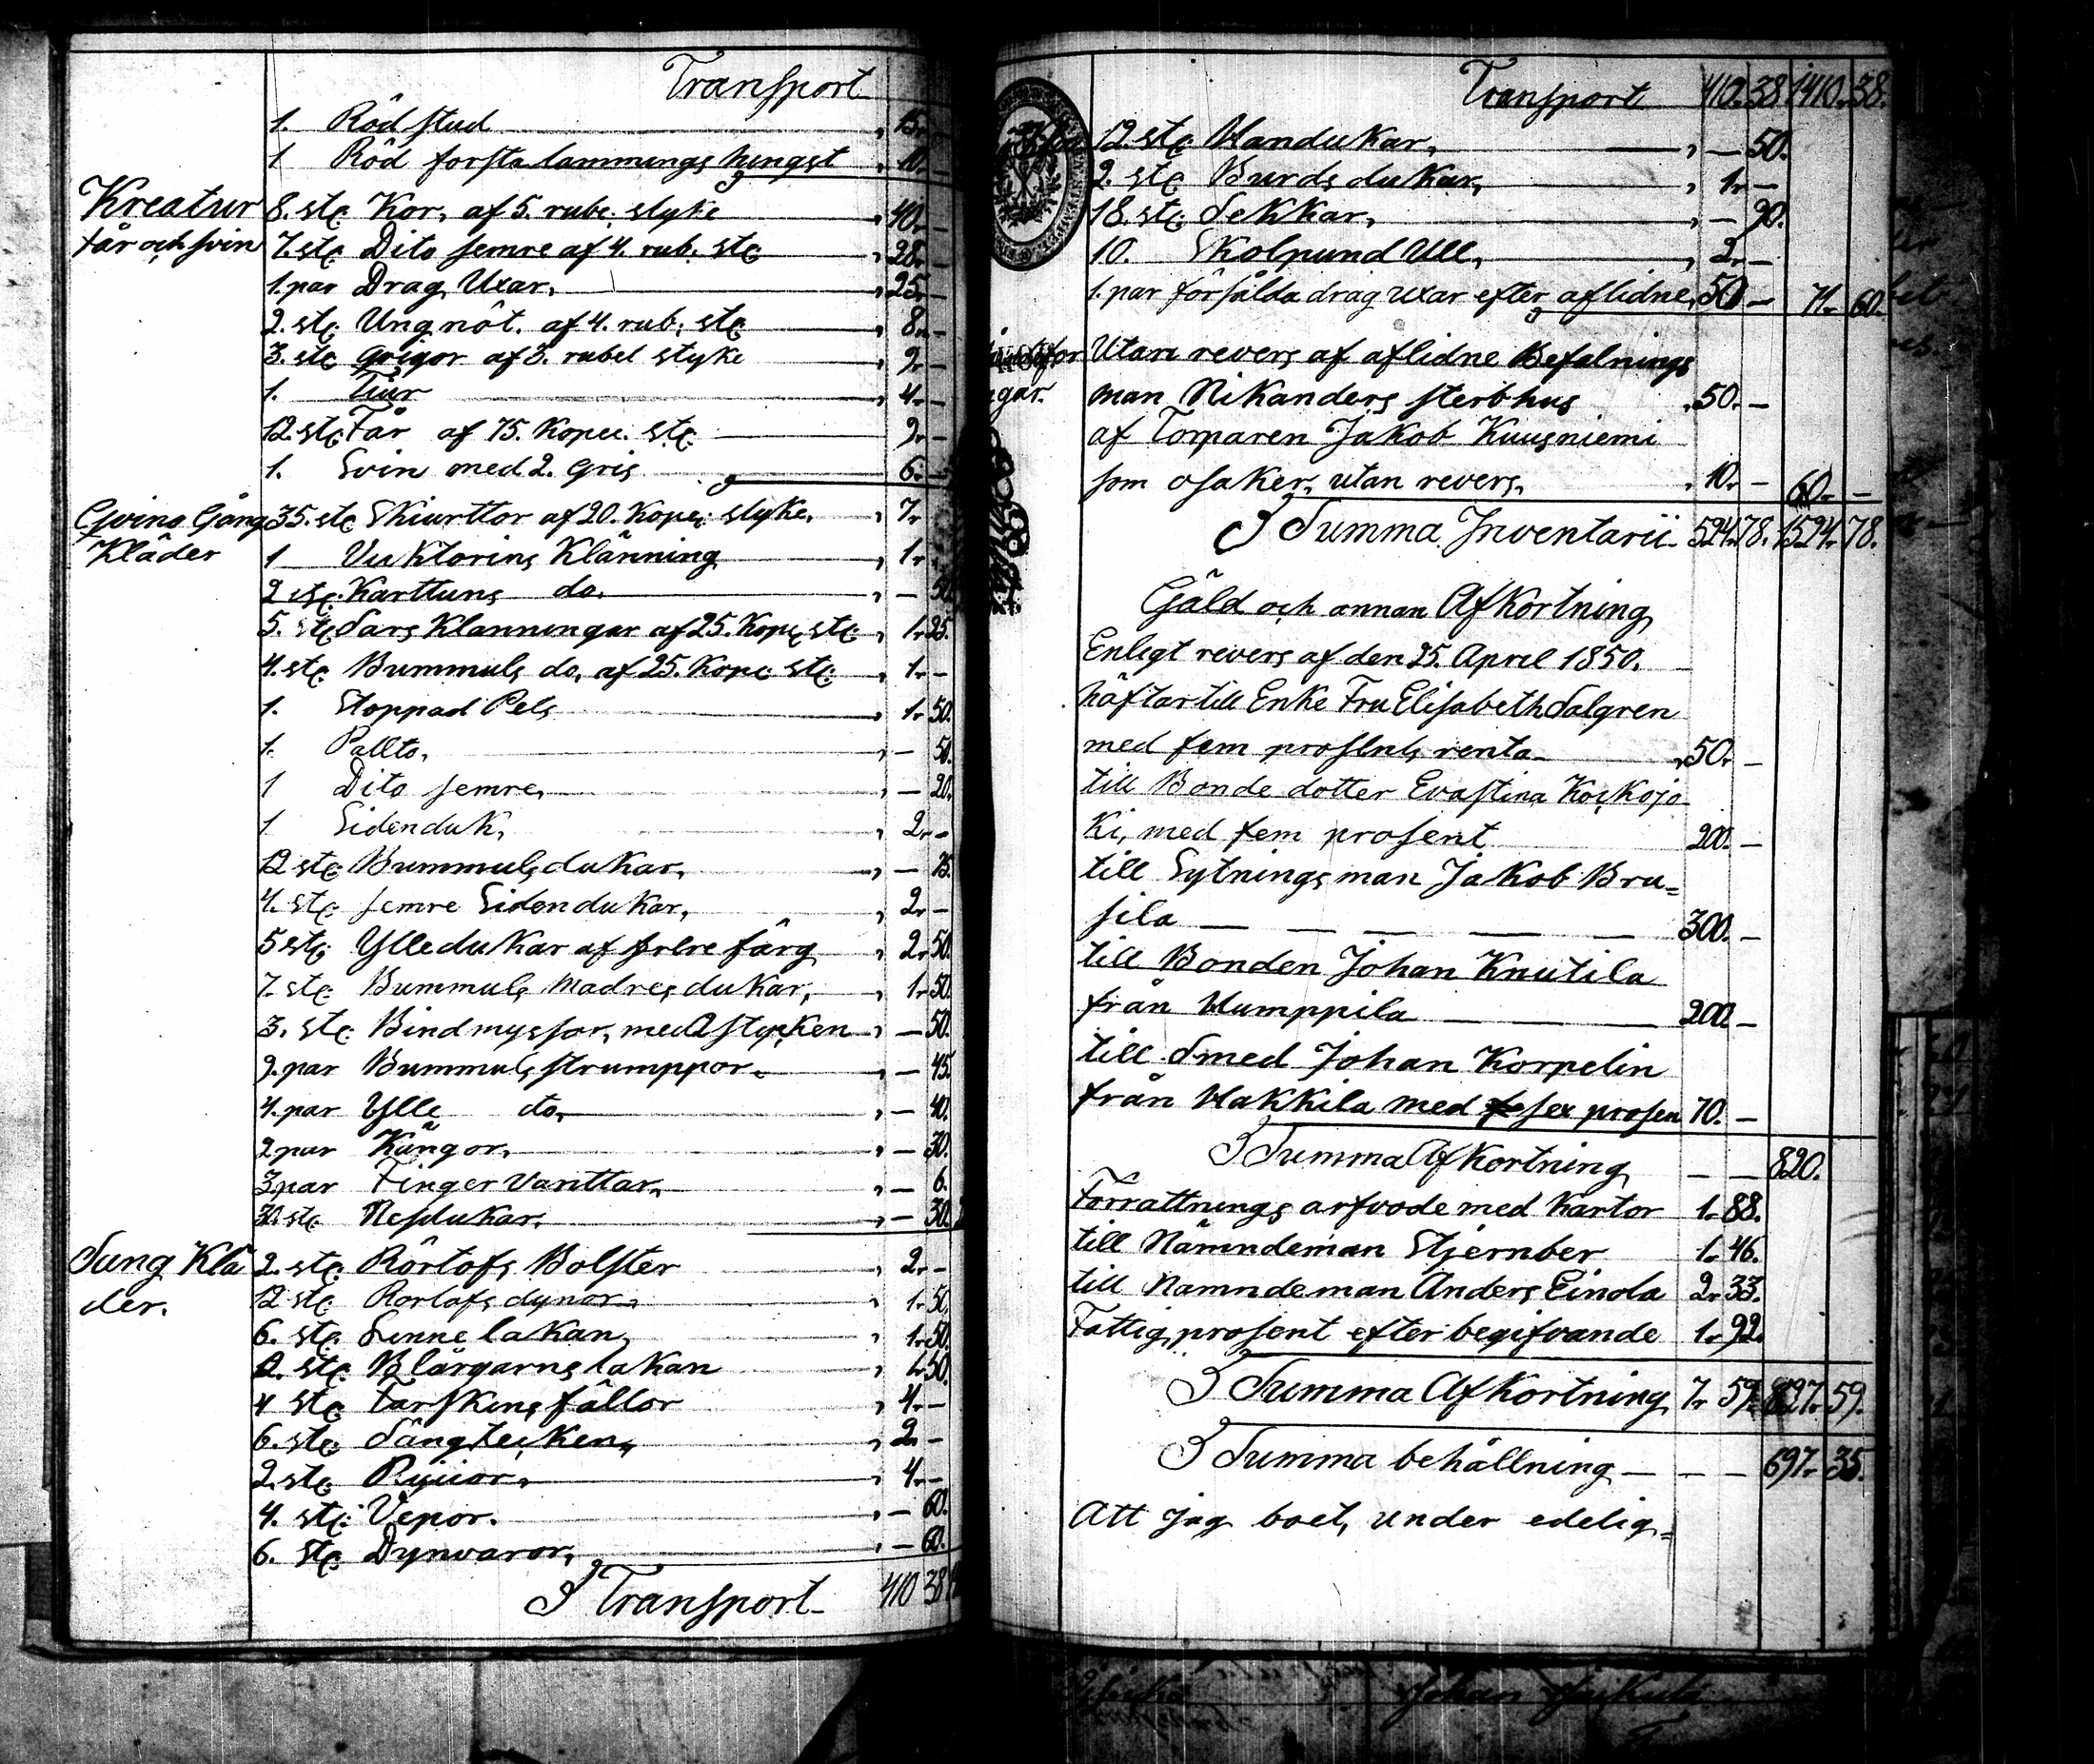 Transport
1. Röd stud " 15.-
1 Röd forsta lammungs hengst " 10.-
Kreatur 8. stc. Kor, af 5. rube. styke " 40.-
får och svin 7. stc Dito semre af 4. rub. stc " 28.-
1. par Drag Uxar, " 25.-
2. stc. Ungnöt. af 4. rub. stc " 8.-
3. stc qvigor af 3. rubel styke " 9.-
1. Tiur " 4.-
12. stc. Får af 75. Kopec. stc. " 9.-
1. Svin med 2. Gris 6.-
Qvino Gång 35. stc Skiurttor af 20. Kopec. styke, " 7.
Kläder 1 Vuktorins Klänning 1.
2 stc. Karttuns do. " - 50
5. stc Sars Klanningar af 25. Kopc stc " 1. 25.
4. stc. Bummuls do. af 25. Kopc stc. " 1.-
1. Stoppad Pels " 1. 50.
1. Pallto, " - 50.
1 Dito semre, " - 20.
1 Sidenduk, " 2.-
12 stc. Bummuls dukar, " - 75.
4. stc. semre Sidendukar, " 2.-
5 stc. Ylledukar af färg " 2. 50.
7. stc. Bummuls Madres dukar, " 1. 50.
3. stc. Bindmyssor, med 2 stycken " - 50.
9. par Bummuls strumppor. " - 45.
4. par Ylle do, " - 40.
2 par Kängor, " - 30.
3. par Finger Vanttar, " - 6.
stc. Nesdukar, " - 30.
Säng Klä 2. stc. Rörtofs Bolster " 2.-
der. 12 stc. Rörtofs dynor " 1. 50.
6. stc. Linne lakan, " 1. 50.
12. stc. Blårgarns lakan " 1. 50.
4 stc Farskins fällor " 4.-
6. stc. Sängtecken, " 2.-
2. stc. Ryiior, " 4.-
4. stc. Vepor. " - 60.
6. stc. Dynvaror, " - 60.
Transport 410 38
Transport 410. 38 1410. 38.
12. stc. Handukar, " - 50.
2. stc. Burds dukar, " 1.-
18. stc. Sekkar, " - 90.
10. Skolpund Ull, " 2.-
1. par försålda drag uxar efter aflidne, 50 - 71. 60.
Utan revers af aflidne Befalnings
gar. man Nikanders sterbhus " 50.-
af Torparen Jakob Kuusniemi
som osaker, utan revers. " 10.- 60.-
Summa Inventarii 524. 78. 1524. 78.
Gäld och annan Afkortning
Enligt revers af den 25. April 1850.
häftar till Enke Fru Elisabeth Salgren
med fem prosents renta " 50.-
till Bonde dotter Evastina Koskojo
ki, med fem prosent 200.-
till Sytningsman Jakob Bru=
sila 300.-
till Bonden Johan Knutila
från Humppila 200.-
till Smed Johan Korpelin
från Hakkila med sex prosen 70.-
Summa Afkortning - - 820.
Förrattnings arfvode med Kartor 1. 88.
till Nämndeman Stjernber 1. 46.
till Namndeman Anders Einola 2. 33.
Fattig prosent efter begifvande 1. 92.
Summa Afkortning 7. 59. 827. 59.
Summa behållning - - - 697. 35.
Att jag boet, under edelig=
Johan